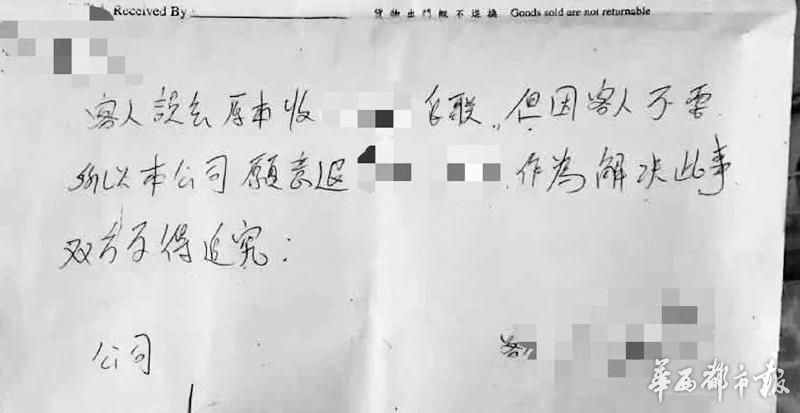 Received By 貨物出門概不退換 Goods sold are not returnable
客人誤会原本收 但因客人不要
所以本公司願意退 作為解决此事
双方不得追究:
公司 客
華西都市报